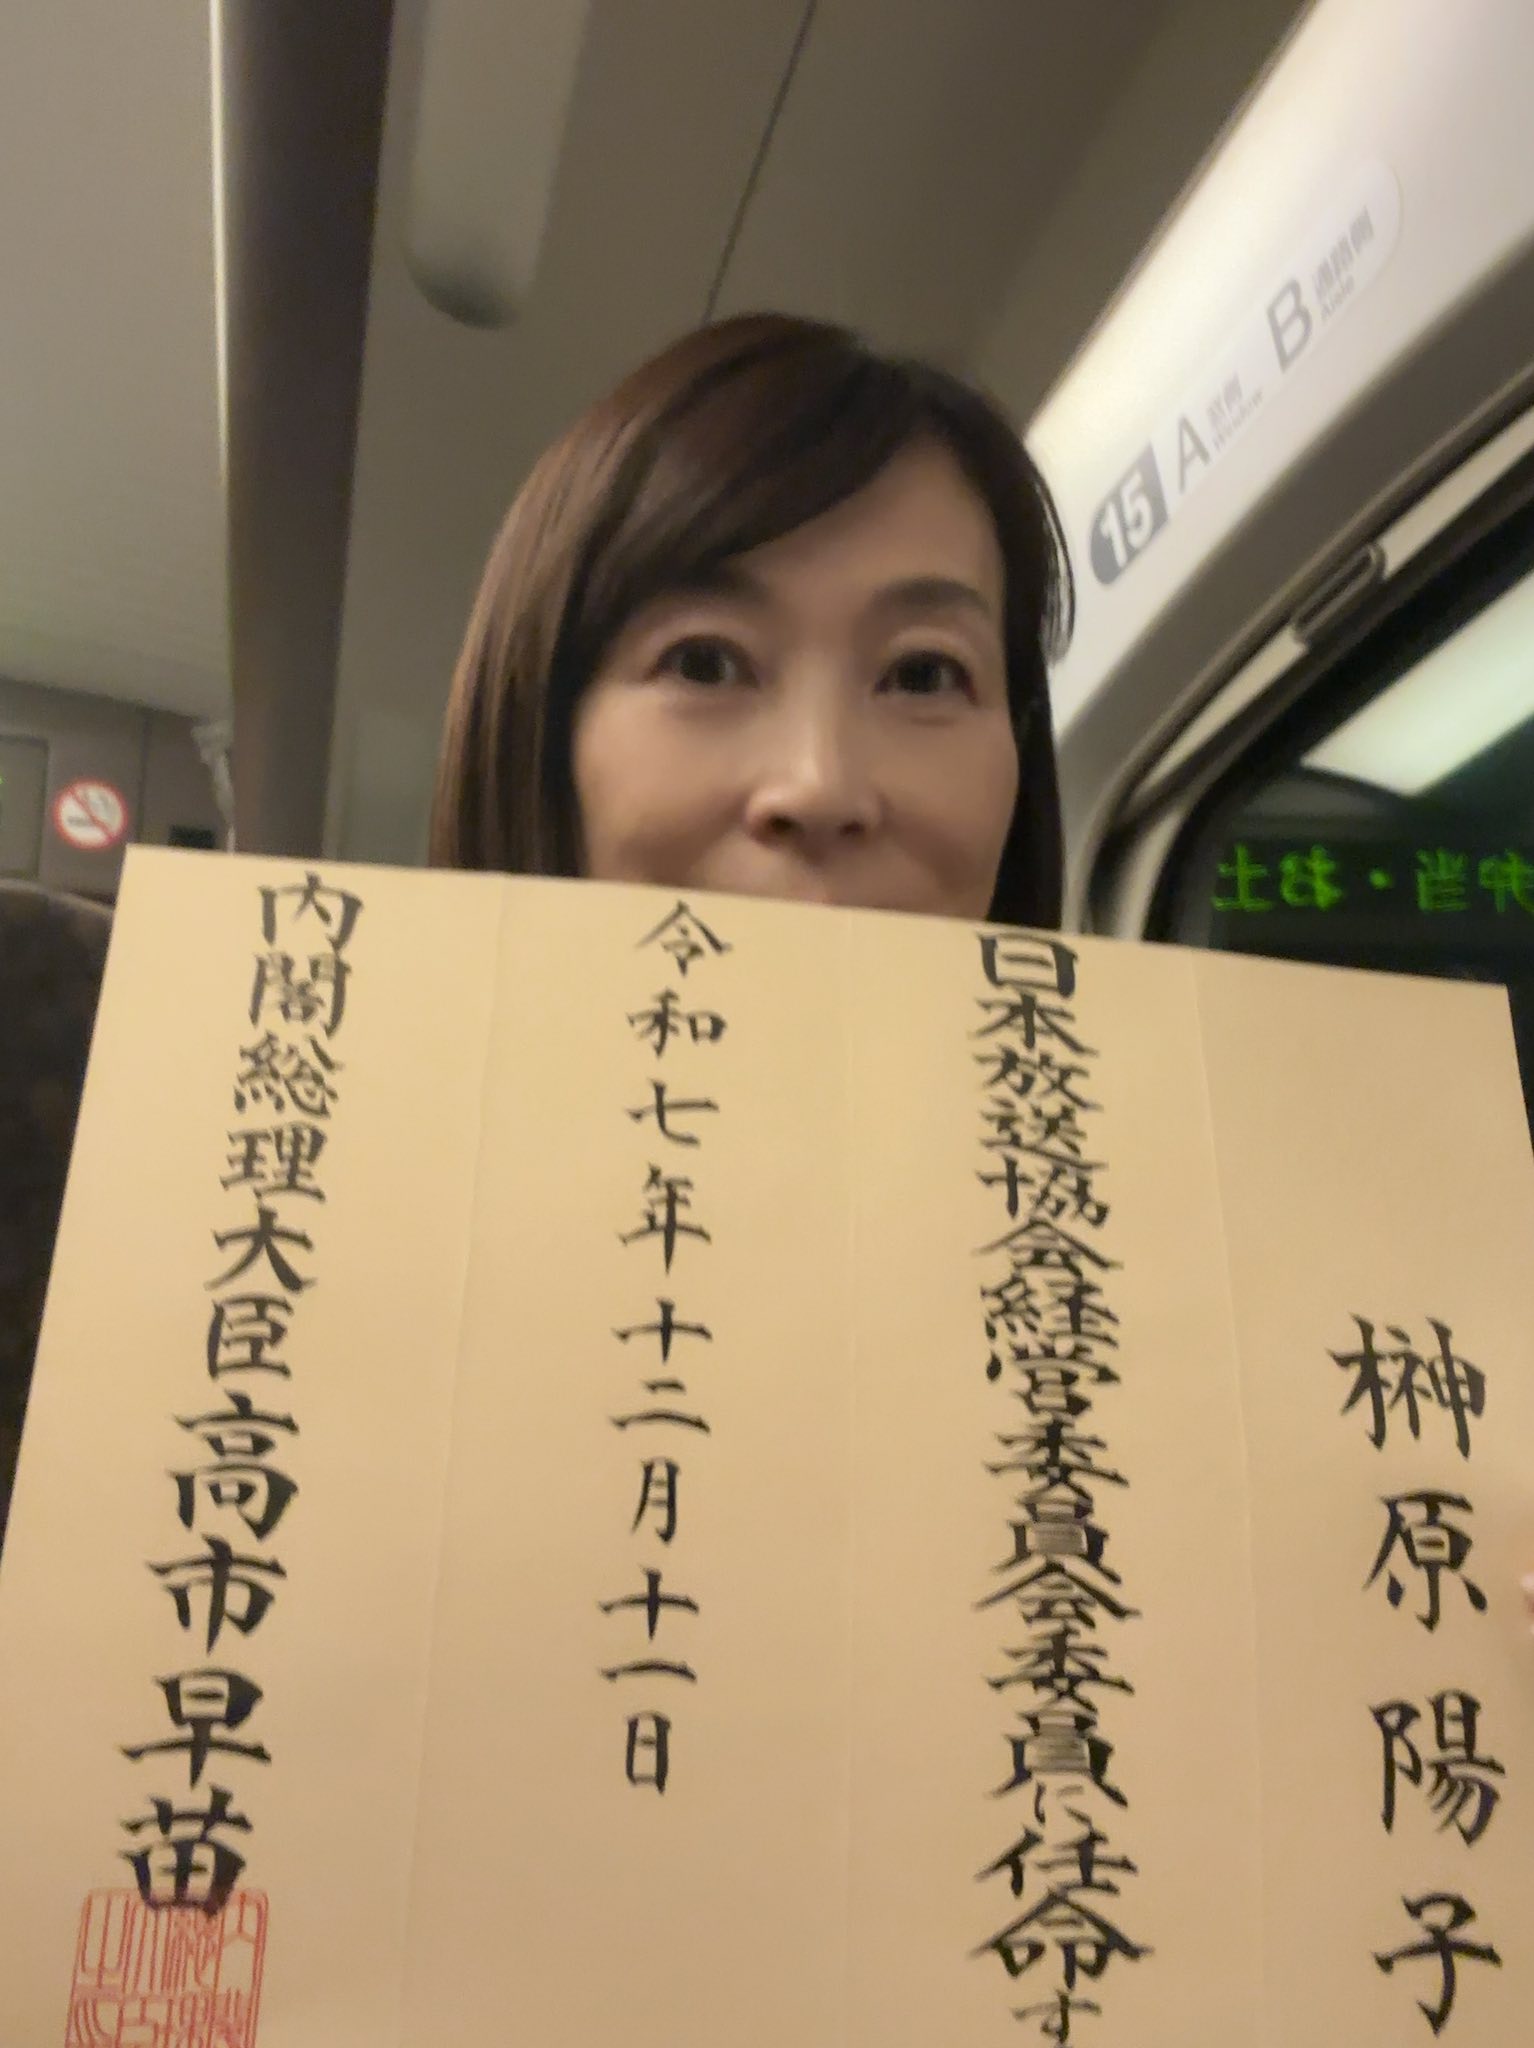 榊原陽子
日本放送協会経営委員会委員に任命す
令和七年十二月十一日
内閣総理大臣高市早苗
15 A 窓側 Window B 通路側 Aisle